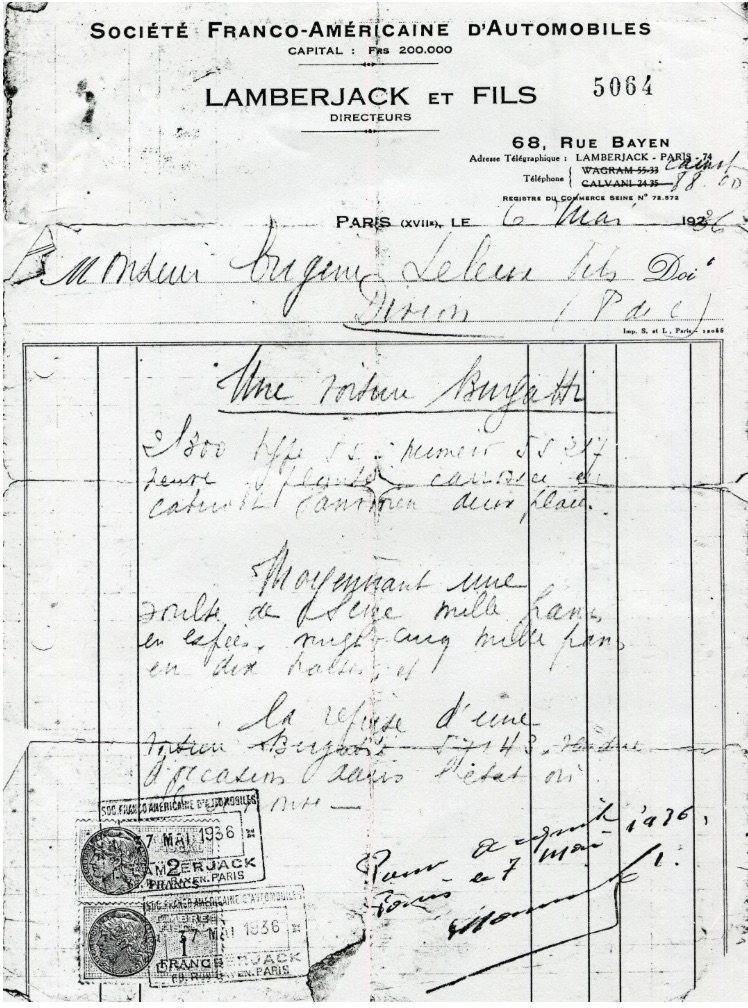 SOCIÉTÉ FRANCO-AMÉRICAINE D'AUTOMOBILES
CAPITAL : FRS 200.000
LAMBERJACK ET FILS
5064
DIRECTEURS
68, RUE BAYEN
Adresse Télégraphique : LAMBERJACK - PARIS - 74
Téléphone WAGRAM 55-33
CALVANI 24-35 88.00
REGISTRE DU COMMERCE SEINE N° 72.572
PARIS (XVIIe), LE 6 Mai 1936
Monsieur Eugène Leleux fils Doit
Divion (P de C)
Imp. S. et L., Paris
Une voiture Bugatti
21300 type 55 numero 55 217
carrossée en
deux places.
Moyennant une
soulte de Seize mille francs
en espèces, vingt-cinq mille francs
en dix traites, et
la reprise d'une
voiture Bugatti 57143, vendue
d'occasion dans l'état où
SOC. FRANCO AMERICAINE D'AUTOMOBILES
7 MAI 1936
2
LAMBERJACK
FRANCS
PARIS
Pour acquit
Paris le 7 mai 1936.
SOC. FRANCO AMERICAINE D'AUTOMOBILES
7 MAI 1936
1
FRANC
68, RUE BAYEN. PARIS